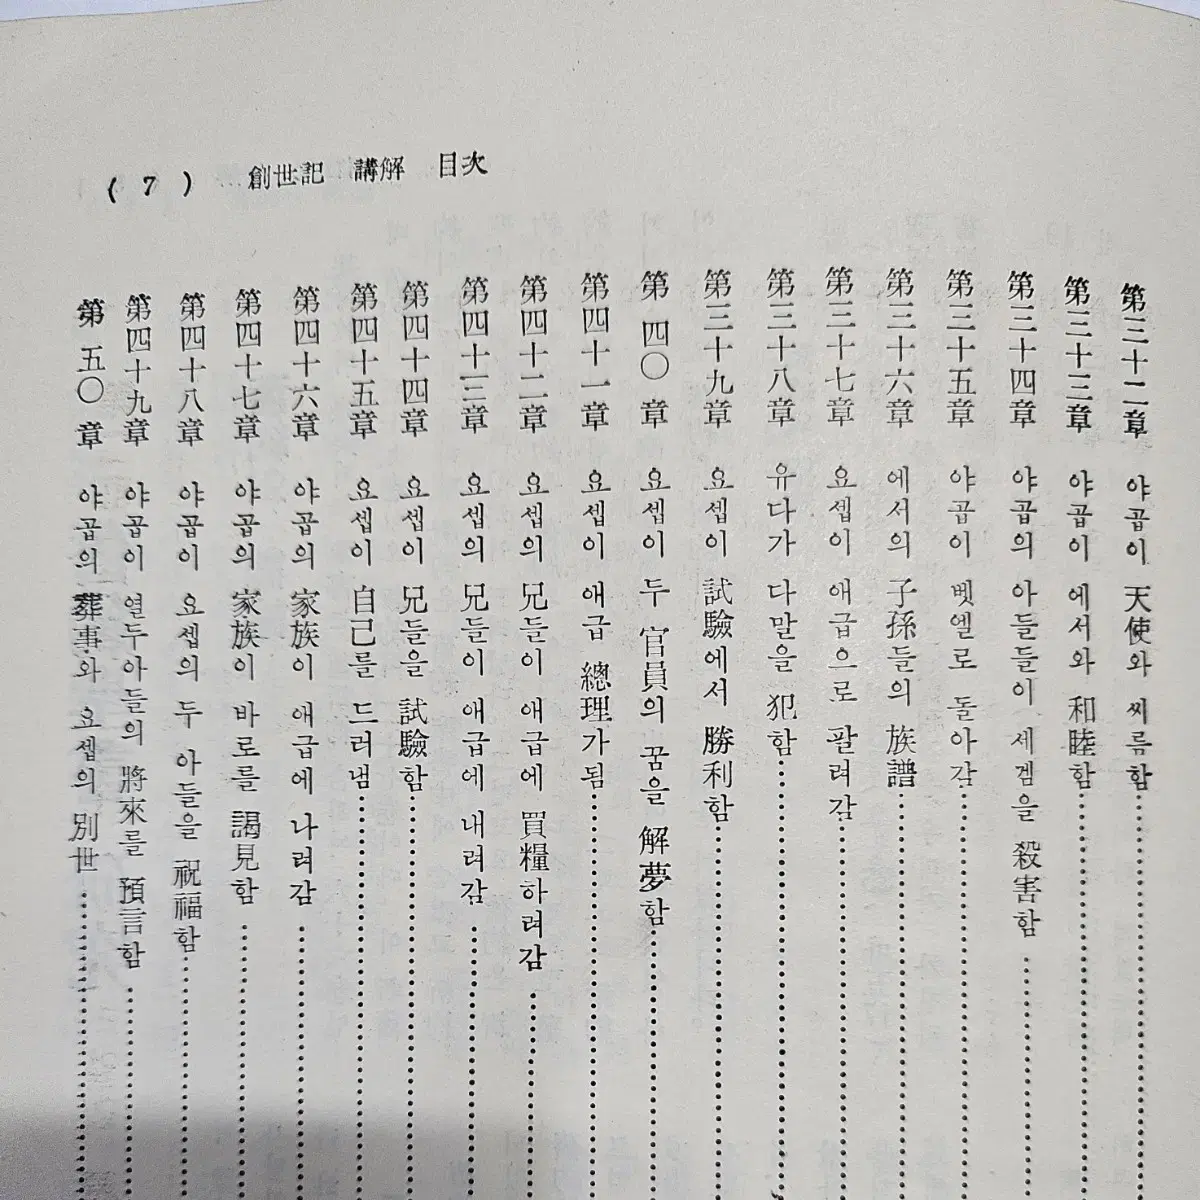 ( 7 ) 創世記 講解 目次
第三十二章 야곱이 天使와 씨름함
第三十三章 야곱이 에서와 和睦함
第三十四章 야곱의 아들들이 세겜을 殺害함
第三十五章 야곱이 벳엘로 돌아감
第三十六章 에서의 子孫들의 族譜
第三十七章 요셉이 애급으로 팔려감
第三十八章 유다가 다말을 犯함
第三十九章 요셉이 試驗에서 勝利함
第 四〇 章 요셉이 두 官員의 꿈을 解夢함
第四十一章 요셉이 애급 總理가 됨
第四十二章 요셉의 兄들이 애급에 買糧하려감
第四十三章 요셉의 兄들이 애급에 내려감
第四十四章 요셉이 兄들을 試驗함
第四十五章 요셉이 自己를 드러냄
第四十六章 야곱의 家族이 애급에 나려감
第四十七章 야곱의 家族이 바로를 謁見함
第四十八章 야곱이 요셉의 두 아들을 祝福함
第四十九章 야곱이 열두아들의 將來를 預言함
第 五〇 章 야곱의 葬事와 요셉의 別世